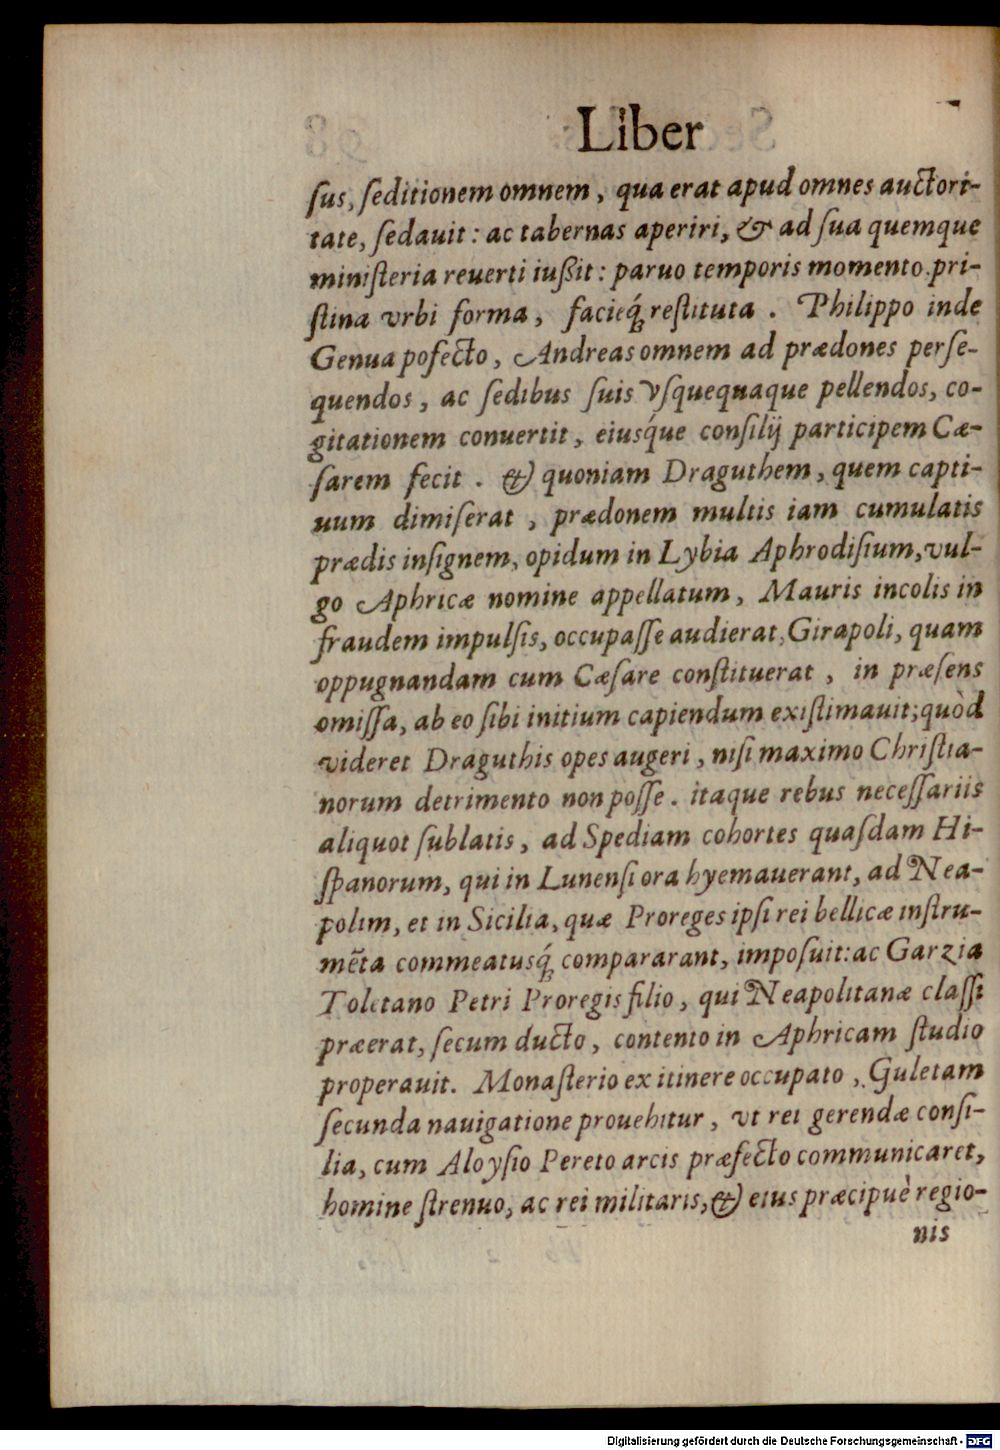 Liber
ſus, ſeditionem omnem, qua erat apud omnes auctori-
tate, ſedauit: ac tabernas aperiri, & ad ſua quemque
miniſteria reuerti iußit: paruo temporis momento pri-
ſtina vrbi forma, facieq́; reſtituta. Philippo inde
Genua pofecto, Andreas omnem ad prædones perſe-
quendos, ac ſedibus ſuis vſquequaque pellendos, co-
gitationem conuertit, eiusq́ue conſilij participem Cæ-
ſarem fecit. & quoniam Draguthem, quem capti-
uum dimiſerat, prædonem multis iam cumulatis
prædis inſignem, opidum in Lybia Aphrodiſium, vul-
go Aphricæ nomine appellatum, Mauris incolis in
fraudem impulſis, occupaſſe audierat, Girapoli, quam
oppugnandam cum Cæſare conſtituerat, in præſens
omiſſa, ab eo ſibi initium capiendum exiſtimauit; quòd
videret Draguthis opes augeri, niſi maximo Chriſtia-
norum detrimento non poſſe. itaque rebus neceſſariis
aliquot ſublatis, ad Spediam cohortes quaſdam Hi-
ſpanorum, qui in Lunenſi ora hyemauerant, ad Nea-
polim, et in Sicilia, quæ Proreges ipſi rei bellicæ inſtru-
mẽta commeatusq́; compararant, impoſuit: ac Garzia
Toletano Petri Proregis filio, qui Neapolitanæ claſſi
præerat, ſecum ducto, contento in Aphricam ſtudio
properauit. Monaſterio ex itinere occupato, Guletam
ſecunda nauigatione prouehitur, vt rei gerendæ conſi-
lia, cum Aloyſio Pereto arcis præfecto communicaret,
homine ſtrenuo, ac rei militaris, & eius præcipuè regio-
nis
Digitalisierung gefördert durch die Deutsche Forschungsgemeinschaft - DFG